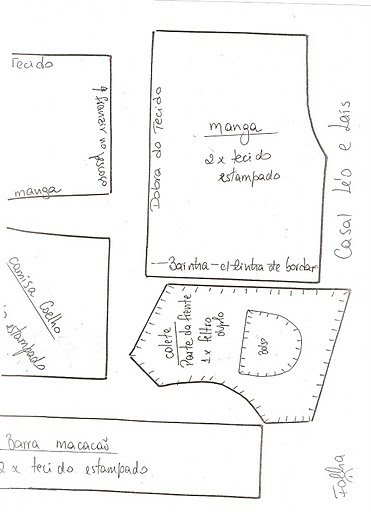 Tecido
manga
Dobra do Tecido
manga
2 x tecido
estampado
Bainha - c/ linha de bordar
Casal Léo e Laís
camisa Coelho
estampado
colete
Parte da frente
1 x feltro
duplo
Bolso
Barra macacão
2 x tecido estampado
Folha